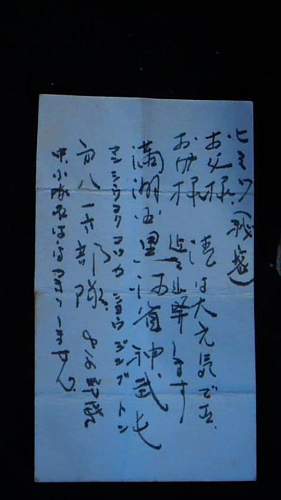 ヒミツ(秘密)
お父様 清は大元気です
お母様 近々出撃します
満洲国黒河省神武屯
マンシウコクコクカショウジンブトン
八一六部隊
中小隊名はまだません